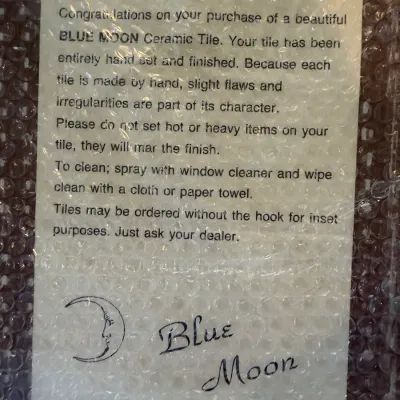 Congratulations on your purchase of a beautiful
BLUE MOON Ceramic Tile. Your tile has been
entirely hand set and finished. Because each
tile is made by hand, slight flaws and
irregularities are part of its character.
Please do not set hot or heavy items on your
tile, they will mar the finish.
To clean; spray with window cleaner and wipe
clean with a cloth or paper towel.
Tiles may be ordered without the hook for inset
purposes. Just ask your dealer.
Blue
Moon